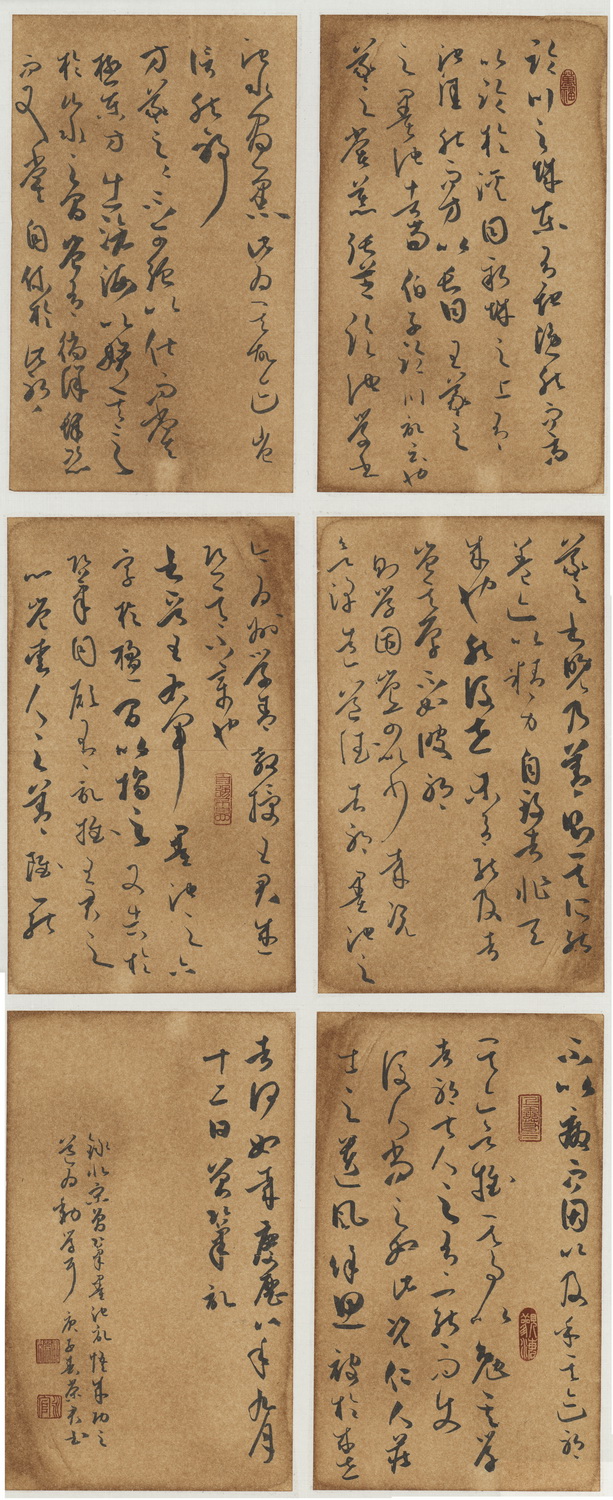 臨川之城東有地隱然而高
以臨於溪曰新城之上有
池窪然而方以長曰王羲之
之墨池者荀伯子臨川記云也
羲之嘗慕張芝臨池學書
池水盡黑此為其故迹豈
信然邪
方羲之之不可強以仕而嘗
極東方出滄海以娛其意
於山水之間豈有徜徉肆恣
而又嘗自休於此邪
羲之書晚乃善則其所能
蓋亦以精力自致者非天
成也然後世未有能及者
豈其學不如彼邪
則學固豈可以少哉況
欲深造道德者邪墨池之
今為州學舍教授王君盛
恐其不章也
書晉王右軍墨池之六
字於楹間以揭之又告於
鞏曰願有記推王君之
心豈愛人之善雖一能
不以廢而因以及乎其迹邪
其亦欲推其事以勉其學
者邪夫人之有一能而使
後人尚之如此況仁人莊
士之遺風餘思被於來世
者何如哉慶曆八年九月
十二日曾鞏記
錄北宋曾鞏墨池記悟成功之
道為勤學耳 庚子春 書